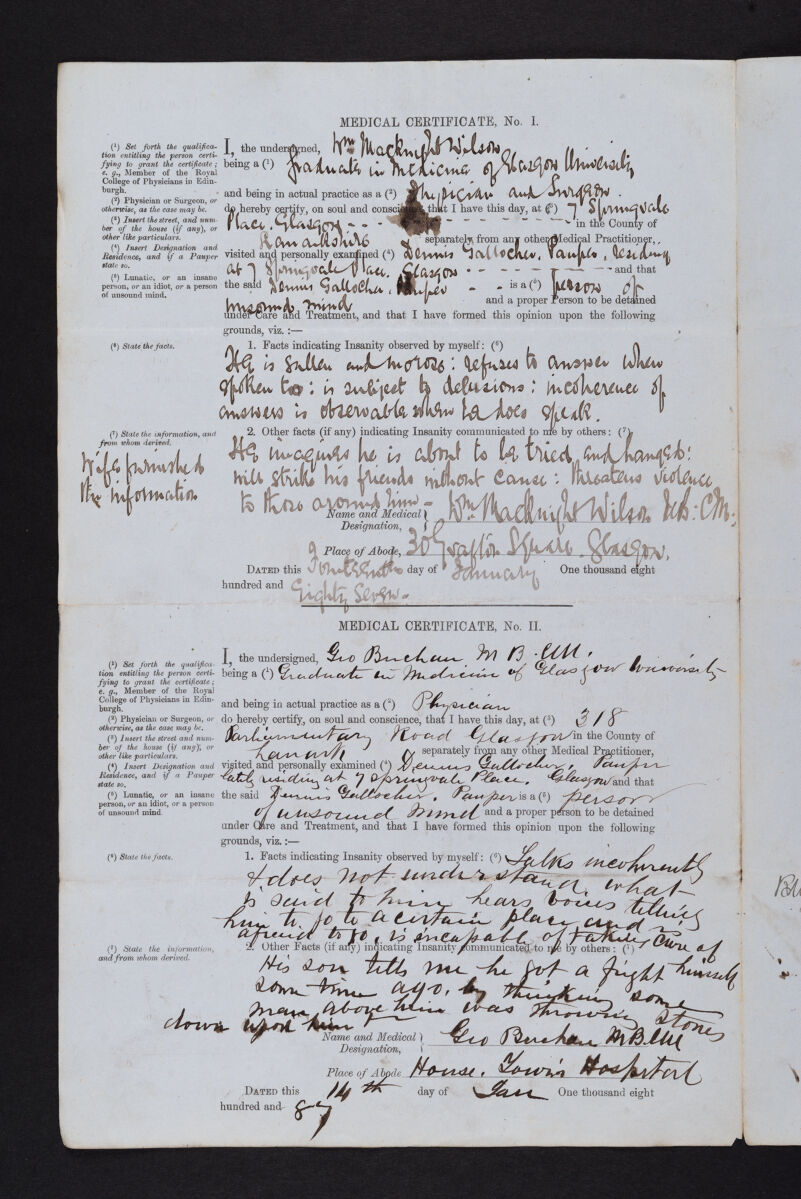 MEDICAL CERTIFICATE, No. I.
(1) Set forth the qualifica-
tion entitling the person certi-
fying to grant the certificate;
e. g., Member of the Royal
College of Physicians in Edin-
burgh.
(2) Physician or Surgeon, or
otherwise, as the case may be.
(3) Insert the street, and num-
ber of the house (if any), or
other like particulars.
(4) Insert Designation and
Residence, and if a Pauper
state so.
(5) Lunatic, or an insane
person, or an idiot, or a person
of unsound mind.
I, the undersigned, Wm Macknight Wilson
being a (1) Graduate in Medicine of Glasgow University
and being in actual practice as a (2) Physician and Surgeon.
do hereby certify, on soul and conscience, that I have this day, at (3) 7 Springvale
Place. Glasgow - - in the County of
Lanarkshire separately from any other Medical Practitioner,
visited and personally examined (4) Dennis Gallocher. Pauper, residing
at 7 Springvale Place. Glasgow - and that
the said Dennis Gallocher, Pauper - - is a (5) person of
unsound mind and a proper Person to be detained
under Care and Treatment, and that I have formed this opinion upon the following
grounds, viz. :—
(6) State the facts.
1. Facts indicating Insanity observed by myself: (6)
He is sullen and morose: refuses to answer when
spoken to: is subject to delusions: incoherence of
answers is observable when he does speak.
(7) State the information, and
from whom derived.
Wife furnished
the information
2. Other facts (if any) indicating Insanity communicated to me by others: (7)
He imagines he is about to be tried and hanged:
will strike his friends without cause: threatens violence
to those around him -
Name and Medical Designation, Wm Macknight Wilson M.B: C.M:
Place of Abode, 30 Grafton Square. Glasgow.
DATED this Fourteenth day of January One thousand eight
hundred and Eighty Seven.
MEDICAL CERTIFICATE, No. II.
(1) Set forth the qualifica-
tion entitling the person certi-
fying to grant the certificate;
e. g., Member of the Royal
College of Physicians in Edin-
burgh.
(2) Physician or Surgeon, or
otherwise, as the case may be.
(3) Insert the street and num-
ber of the house (if any), or
other like particulars.
(4) Insert Designation and
Residence, and if a Pauper
state so.
(5) Lunatic, or an insane
person, or an idiot, or a person
of unsound mind.
I, the undersigned, Geo Buchan M B. CM.
being a (1) Graduate in Medicine of Glasgow University
and being in actual practice as a (2) Physician
do hereby certify, on soul and conscience, that I have this day, at (3) 318
Parliamentary Road Glasgow in the County of
Lanark separately from any other Medical Practitioner,
visited and personally examined (4) Dennis Gallocher. Pauper
lately residing at 7 Springvale Place. Glasgow and that
the said Dennis Gallocher. Pauper is a (5) person
of unsound mind and a proper person to be detained
under Care and Treatment, and that I have formed this opinion upon the following
grounds, viz. :—
(6) State the facts.
1. Facts indicating Insanity observed by myself: (6) Talks incoherently
& does not understand what
is said to him hears voices telling
him to go to a certain place and is
afraid to go, is incapable of taking care of
himself
(7) State the information,
and from whom derived.
2. Other Facts (if any) indicating Insanity communicated to me by others: (7)
His son tells me he got a fright
some time ago, by thinking some
man above him was throwing stones
down upon him
Name and Medical Designation, Geo Buchan MB CM
Place of Abode House. Town's Hospital
DATED this 14th day of Jan One thousand eight
hundred and 87